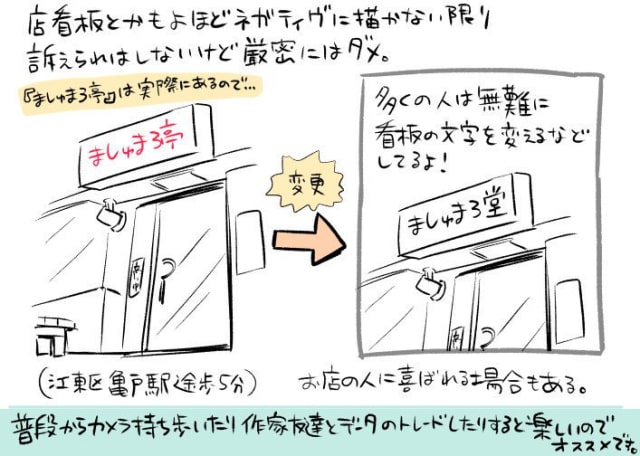 店看板とかもよほどネガティヴに描かない限り
訴えられはしないけど厳密にはダメ。
『ましゅまろ亭』は実際にあるので…
ましゅまろ亭
変更
多くの人は無難に
看板の文字を変えるなど
してるよ!
ましゅまろ堂
(江東区亀戸駅徒歩5分)
お店の人に喜ばれる場合もある。
普段からカメラ持ち歩いたり作家友達とデータのトレードしたりすると楽しいので
オススメです。